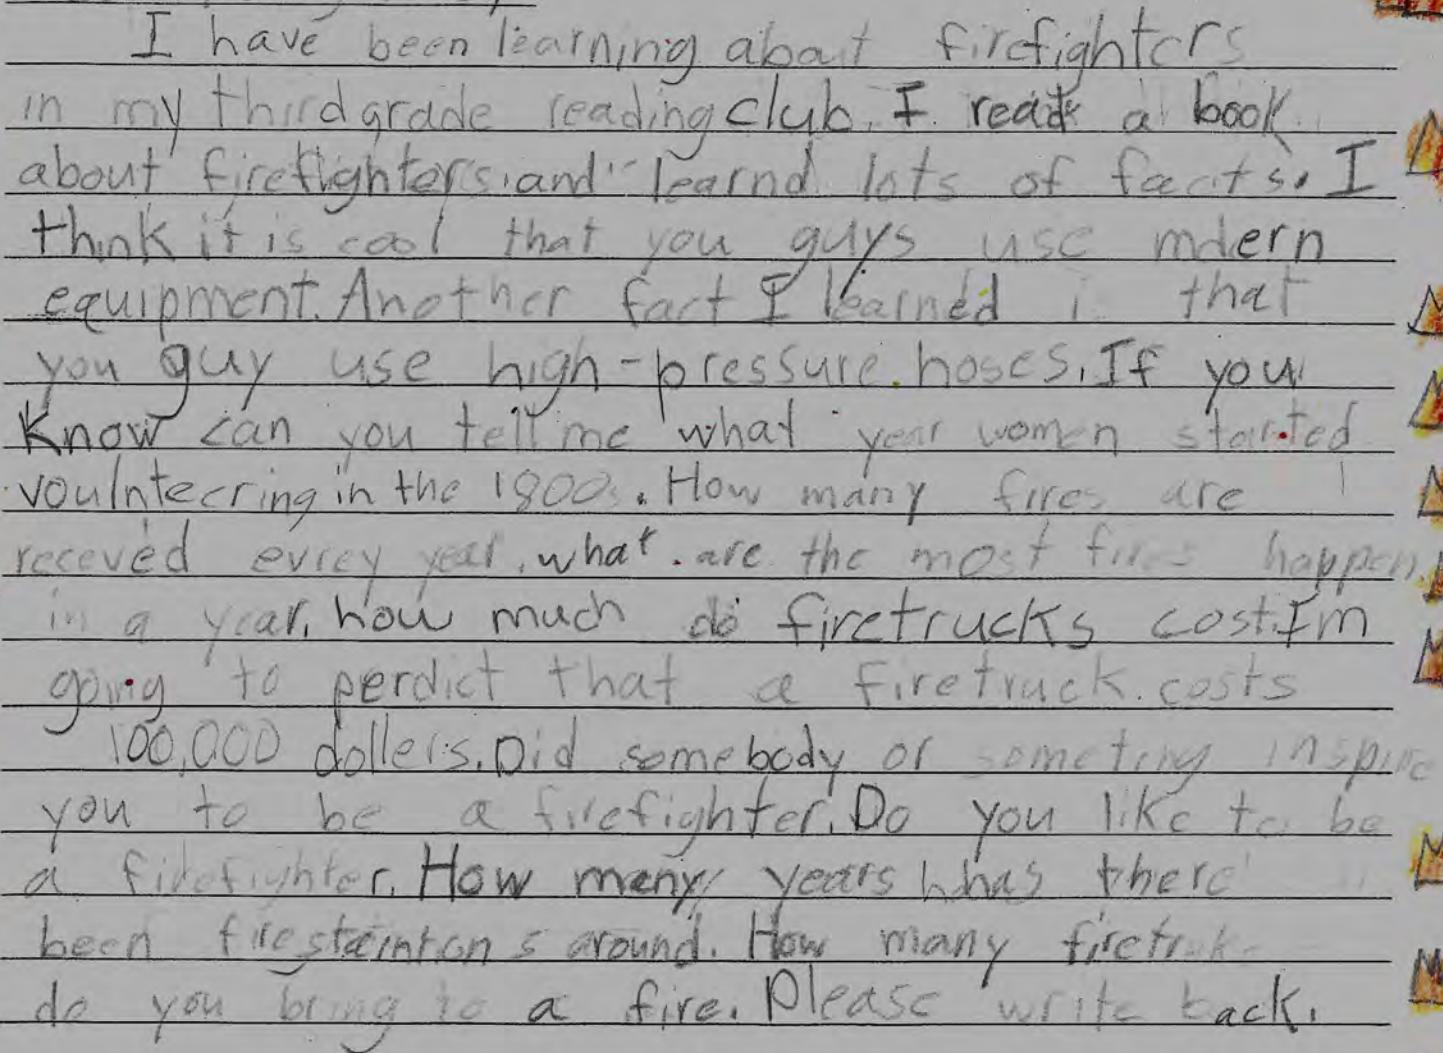 I have been learning about firefighters
in my third grade reading club. I read a book
about firefighters and learnd lots of facts. I
think it is cool that you guys use mdern
equipment. Another fact I learned i that
you guy use high-pressure hoses. If you
Know can you tell me what year women started
voulnteering in the 1800s. How many fires are
receved evrey year. what are the most fires happen
in a year. how much do firetrucks cost. Im
going to perdict that a firetruck costs
100,000 dollers. Did somebody or someting inspire
you to be a firefighter. Do you like to be
a firefighter. How meny years has there
been firestaintons around. How many firetruk
do you bring to a fire. Please write back.